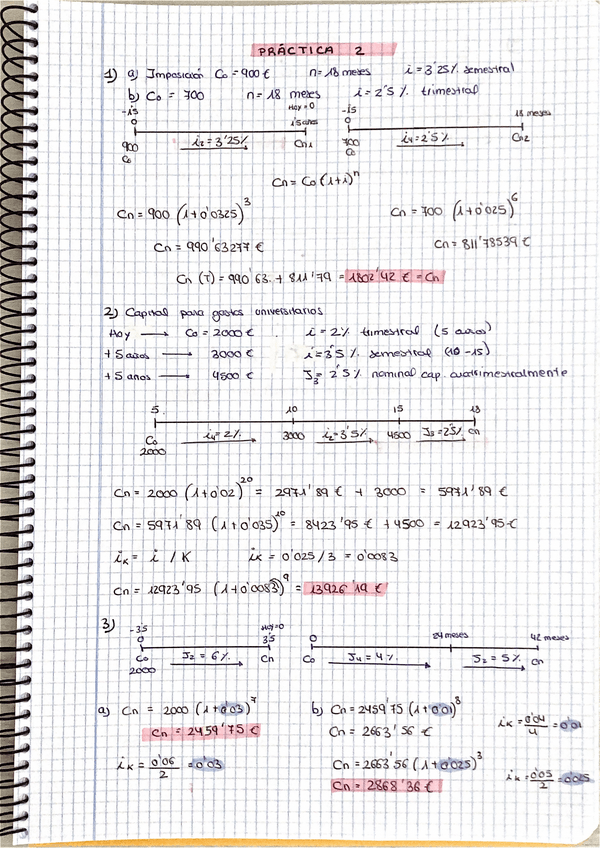 PRÁCTICA 2
1) a) Imposición Co = 900 € n = 18 meses i = 3'25% semestral
b) Co = 700 n = 18 meses i = 2'5% trimestral
-1'5 Hoy = 0 -1'5 18 meses
0 1'5 años 0
900 i2 = 3'25% Cn1 700 i4 = 2'5% Cn2
Co Co
Cn = Co (1+i)^n
Cn = 900 (1+0'0325)^3 Cn = 700 (1+0'025)^6
Cn = 990'63277 € Cn = 811'78539 €
Cn (T) = 990'63 + 811'79 = 1802'42 € = Cn
2) Capital para gastos universitarios
Hoy → Co = 2000 € i = 2% trimestral (5 años)
+5 años → 3000 € i = 3'5% semestral (10-15)
+5 años → 4500 € J3 = 2'5% nominal cap. cuatrimestralmente
5 10 15 18
Co i4 = 2% 3000 i2 = 3'5% 4500 J3 = 2'5% Cn
2000
Cn = 2000 (1+0'02)^20 = 2971'89 € + 3000 = 5971'89 €
Cn = 5971'89 (1+0'035)^10 = 8423'95 € + 4500 = 12923'95 €
iK = i / K iK = 0'025/3 = 0'0083
Cn = 12923'95 (1+0'0083)^9 = 13926'19 €
3) -3'5 Hoy = 0
0 3'5 0 24 meses 42 meses
Co J2 = 6% Cn Co J4 = 4% J2 = 5% Cn
2000
a) Cn = 2000 (1+0'03)^7 b) Cn = 2459'75 (1+0'01)^8 iK = 0'04/4 = 0'01
Cn = 2459'75 € Cn = 2663'56 €
iK = 0'06/2 = 0'03 Cn = 2663'56 (1+0'025)^3 iK = 0'05/2 = 0'025
Cn = 2868'36 €